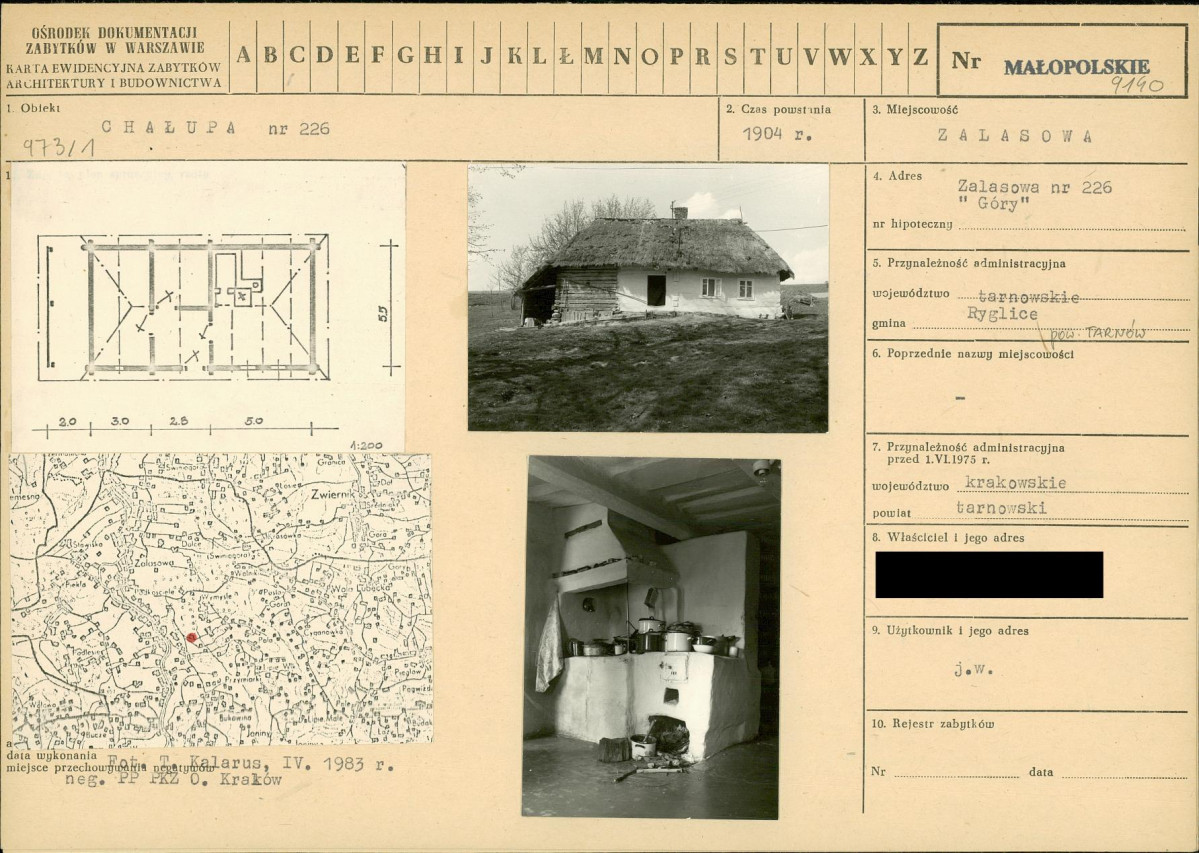 OŚRODEK DOKUMENTACJI
ZABYTKÓW W WARSZAWIE
KARTA EWIDENCYJNA ZABYTKÓW
ARCHITEKTURY I BUDOWNICTWA
A B C D E F G H I J K L Ł M N O P R S T U V W X Y Z
Nr MAŁOPOLSKIE
9190
1. Obiekt
CHAŁUPA nr 226
973/1
2. Czas powstania
1904 r.
3. Miejscowość
ZALASOWA
4. Adres
Zalasowa nr 226
"Góry"
nr hipoteczny
5. Przynależność administracyjna
województwo tarnowskie
gmina Ryglice
pow. TARNÓW
6. Poprzednie nazwy miejscowości
-
7. Przynależność administracyjna
przed 1.VI.1975 r.
województwo krakowskie
powiat tarnowski
8. Właściciel i jego adres
9. Użytkownik i jego adres
j.w.
10. Rejestr zabytków
Nr data
5.5
2.0 3.0 2.8 5.0
1:200
Granica
Zwiernik
Góra
Zalasowa
Wola Lubecka
Bukowina
Joniny
data wykonania Fot. T. Kalarus, IV. 1983 r.
miejsce przechowywania negatywów
neg. PP PKZ O. Kraków